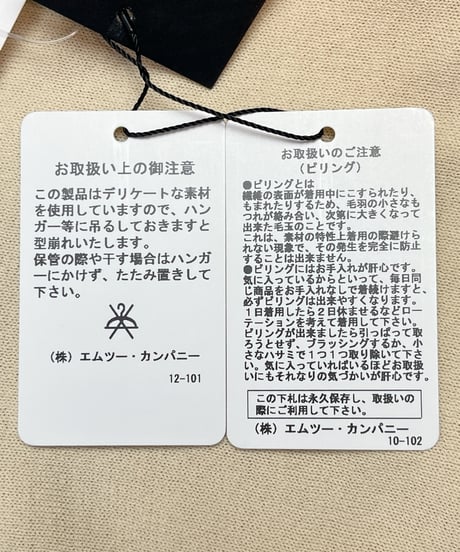 お取扱い上の御注意
この製品はデリケートな素材
を使用していますので、ハン
ガー等に吊るしておきますと
型崩れいたします。
保管の際や干す場合はハンガ
ーにかけず、たたみ置きして
下さい。
(株) エムツー・カンパニー
12-101
お取扱いのご注意
(ピリング)
●ピリングとは
繊維の表面が着用中にこすられたり、
もまれたりするため、毛羽の小さなも
つれが絡み合い、次第に大きくなって
出来た毛玉のことです。
これは、素材の特性上着用の際避けら
れない現象で、その発生を完全に防止
することは出来ません。
●ピリングにはお手入れが肝心です。
気に入っているからといって、毎日同
じ商品をお手入れなしで着続けますと、
必ずピリングは出来やすくなります。
1日着用したら2日休ませるなどロー
テーションを考えて着用して下さい。
ピリングが出来ましたら引っぱって取
ろうとせず、ブラッシングするか、小
さなハサミで1つ1つ取り除いて下さ
い。気に入っていればいるほどお取扱
いにもそれなりの気づかいが肝心です。
この下札は永久保存し、取扱いの
際にご利用して下さい。
(株) エムツー・カンパニー
10-102